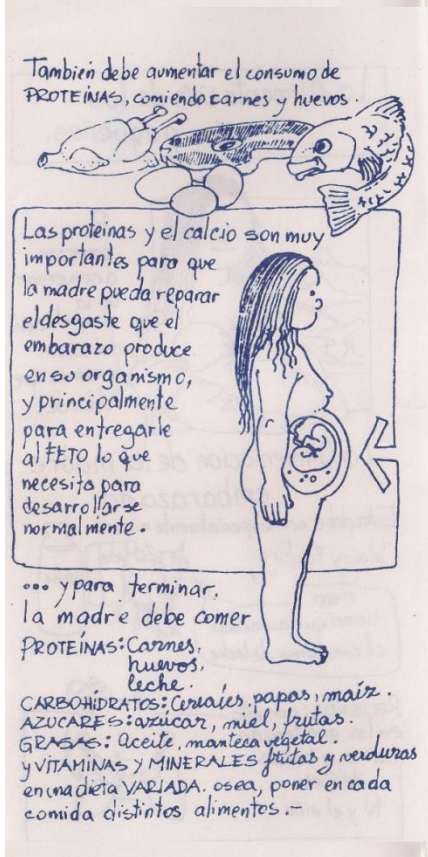 También debe aumentar el consumo de
PROTEÍNAS, comiendo carnes y huevos.
Las proteínas y el calcio son muy
importantes para que
la madre pueda reparar
el desgaste que el
embarazo produce
en su organismo,
y principalmente
para entregarle
al FETO lo que
necesita para
desarrollarse
normalmente.
... y para terminar.
la madre debe comer
PROTEÍNAS: Carnes,
huevos,
leche.
CARBOHIDRATOS: Cereales, papas, maíz.
AZUCARES: azúcar, miel, frutas.
GRASAS: Aceite, manteca vegetal.
y VITAMINAS Y MINERALES frutas y verduras
en una dieta VARIADA. osea, poner en cada
comida distintos alimentos.-